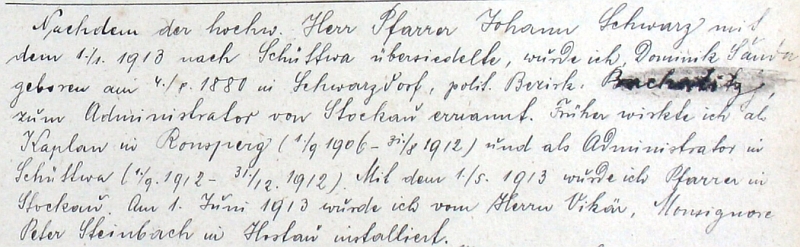 Nachdem der hochw. Herr Pfarrer Johann Schwarz mit
dem 1./1. 1913 nach Schüttwa übersiedelte, wurde ich, Dominik Sanda
geboren am 4./8. 1880 in Schwarzdorf, polit. Bezirk:
zum Administrator von Stockau ernannt. Früher wirkte ich als
Kaplan in Ronsperg (1/9 1906 – 31/8 1912) und als Administrator in
Schüttwa (1/9. 1912 – 31/12. 1912). Mit dem 1./5. 1913 wurde ich Pfarrer in
Stockau. Am 1. Juni 1913 wurde ich vom Herrn Vikär, Monsignore
Peter Steinbach in Hostau installiert.